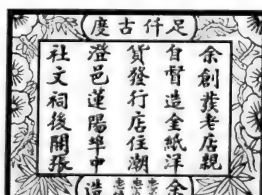 足仟古度
余創發老店親
自督造金紙洋
貨發行店住潮
澄邑蓮陽埠中
社文祠後開張